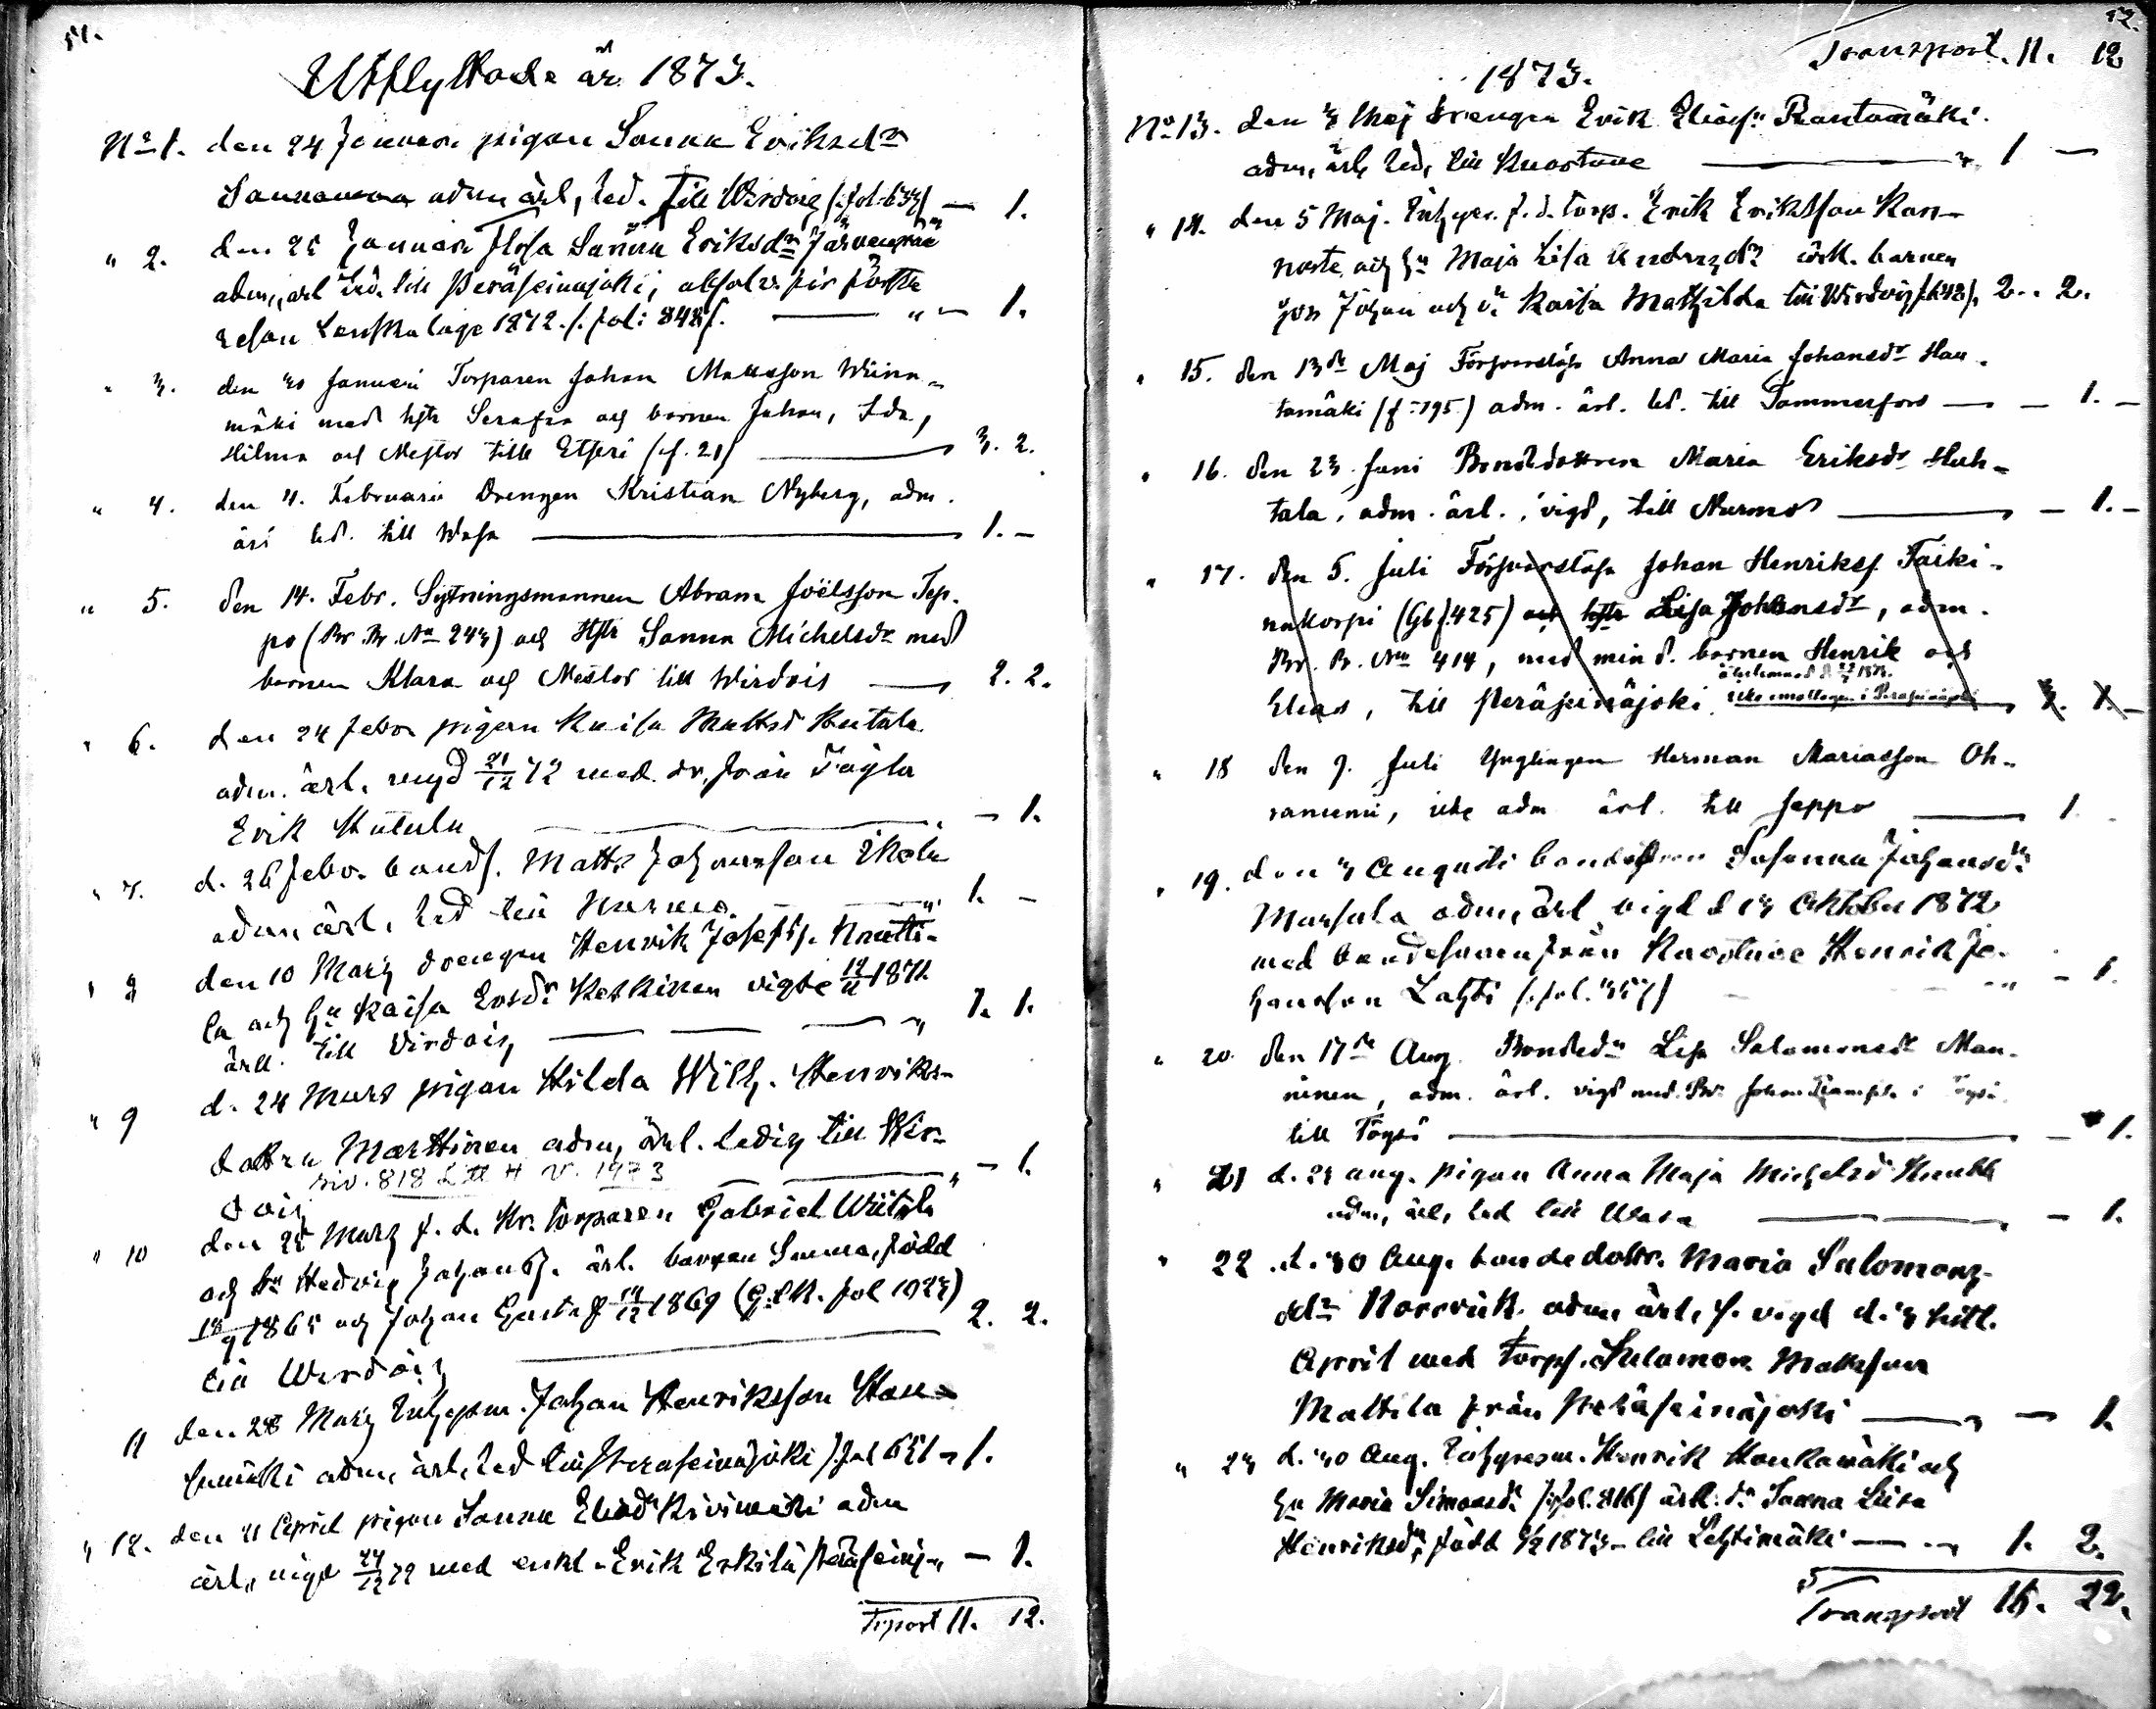 51.
Utflyttade år 1873.
No 1. den 24 Januari pigan Sanna Eriksdr
adm ärl, led. till Wirdois /: fol: 633/ — 1.
" 2. den 25 Januari Flisa Sanna Eriksdr Järvenpää
adm, ärl led. till Peräseinäjoki; absolv. för första
resan Lönskaläge 1872. /. fol: 848/. — " — 1.
" 3. den 30 Januari Torparen Johan Mattsson Wiina-
mäki med hstr Serafia och barnen Johan, Ida,
Hilma och Nestor till Etseri (f. 21) — 3. 2.
" 4. den 4. Februarii Drengen Kristian Nyberg, adm.
ärl led. till Wasa — 1. —
" 5. den 14. Febr. Sytningsmannen Abram Joëlsson Tep-
po (Br. Br. No 243) och Hstr Sanna Michelsdr med
barnen Klara och Nestor till Wirdois — 2. 2.
" 6. den 24 febr pigan Kaisa Mattsd Hutala
adm. ärl. vigd 21/12 72 med dr. från
Erik Hutula — 1.
" 7. d. 26 febr. bonds. Matts Johansson Ikola
adm, ärl, led till Nurmo. — " 1. —
" 8 den 10 Mars drengen Henrik Josefss. Knuutti-
la och hu Kaisa Ersdr Keskinen vigde 12/11 1871
ärll. till Virdois, — " 1. 1.
" 9 d. 24 Mars pigan Hilda Wilh. Henriks-
dottra Marttinen adm, ärl. ledig till Wir-
siv. 818 Litt H v. 1973
dois — " — 1.
" 10 den 25 Mars f. d. Kr. torparen Gabriel Wiitala
och hu Hedvig Johansd. ärl. barnen Sanna, född
18/9 1865 och Johan Gustaf 14/12 1869 (G. l K. fol 1023)
till Wirdois — 2. 2.
11 den 28 Mars Inhysm. Johan Henriksson Hau-
tamäki adm, ärl, led till Peräseinäjoki /. fol 651 — 1.
" 12. den 11 April pigan Sanna Eliasdr Kivimäki adm
ärl, vigd 27/12 72 med enkl. Erik Erkilä Peräseinj — 1.
Trsport 11. 12.
52.
Transport. 11. 12
1873.
No 13. den 3 Maj drengen Erik Eliass. Rantamäki.
adm, ärl, led, till Kuortane — " 1 —
" 14. den 5 Maj. Inhyses. f. d. torp. Erik Eriksson Kan-
naste och hu Maja Lisa Andersdr ärl. barnen
gos Johan och dr Kaisa Mathilda till Wirdois /. 648/. 2. 2.
" 15. den 13de Maj Försvarslösa Anna Maria Johansdr Hau-
tamäki (f-195) adm. ärl. led. till Tammerfors — — 1. —
" 16. den 23 Juni Bondedottren Maria Eriksdr Huh-
tala, adm. ärl., vigd, till Nurmo — — 1. —
" 17. den 5. Juli Försvarslösa Johan Henrikss. Taiki-
nakorpi (Gb f. 425) och hstr Lisa Johansdr, adm.
Br. B. No 414, med mind. barnen Henrik och
Elias, till Peräseinäjoki. — 3. 1. —
" 18 den 9. Juli Ynglingen Herman Mariasson Oh-
ranummi, icke adm ärl. till Jeppo — 1.
" 19. den 3 Augusti bondedottren Susanna Johansdr
Marsala adm, ärl vigd d 13 Oktober 1872
med bondesonen från Kuortane Henrik Jo-
hansson Lahti /. fol. 357/ — " — 1.
" 20 den 17de Aug. Bondedr Lisa Salomonsdr Man-
ninen, adm. ärl. vigd med Br. Johan i Töysä
till Töysä — — 1.
" 21 d. 23 aug. pigan Anna Maja Michelsd
adm, ärl, led till Wasa — — 1.
" 22 d. 30 Aug. bondedottr. Maria Salomons-
ddr Norrvik adm, ärl, f. vigd d. 3 sistl.
April med torps. Salamon Mattsson
Mattila från Peräseinäjoki — — 1
" 23 d. 30 Aug. Inhysesm. Henrik Honkamäki och
hu Maria Simonsdr /. fol. 816/ ärl. dr Sanna Lisa
Henriksdr, född 5/2 1873 — till Lehtimäki — 1. 2.
Transport 15. 22.